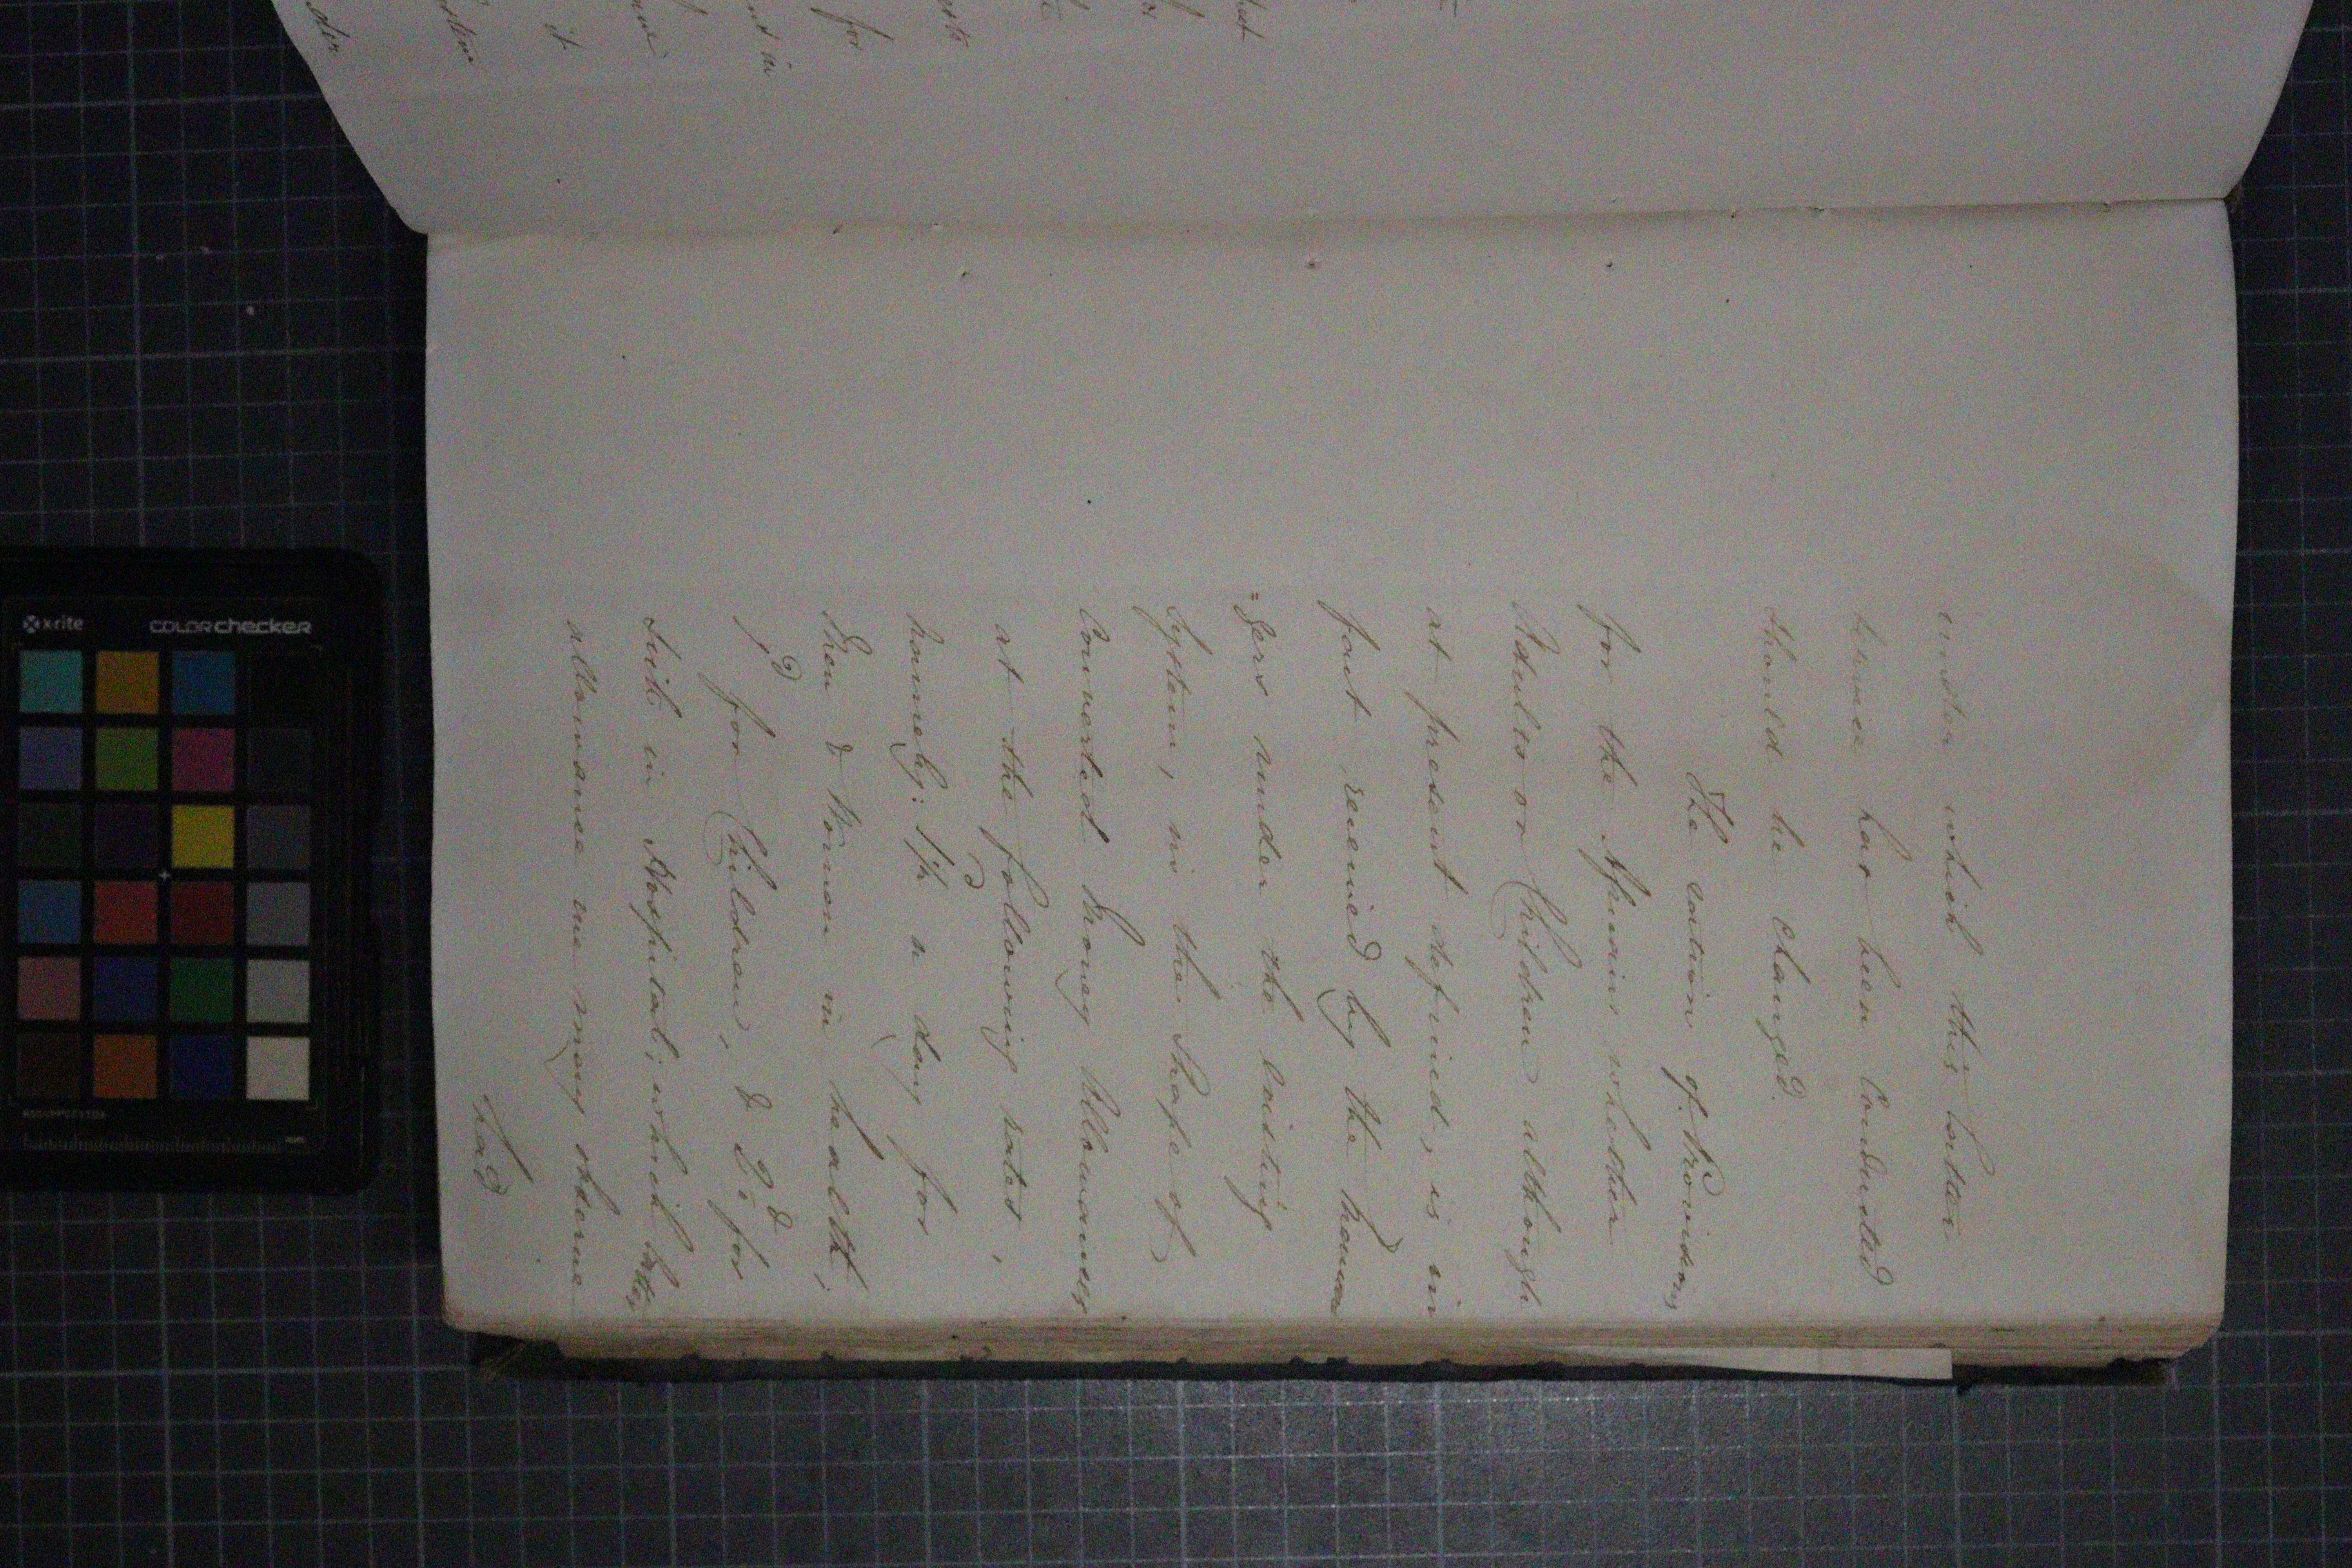 under which this latter
service has been Conducted
should be changed.
The ration of Provisions
for the Africans whether
Adults or Children although
at present defined, is in
fact received by the Mana
=gers under the existing
System, in the Shape of
Converted Money Allowances
at the following rates,
Namely: a day for
Men & Women in health;
for Children, & for
Sick in Hospital; which latter
allowance we may observe
had
der
it
for
x-rite
colorchecker